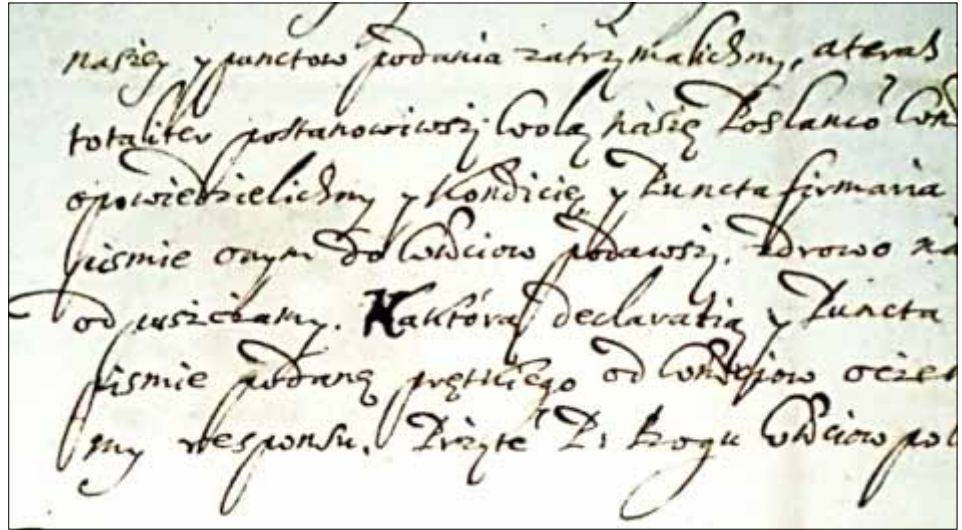 naszey y punctow podania zatrzymalichmy, a teras
totaliter postanowiwszy Wolą naszę Posłańco
opowiedzielichmy y Kondicię y Puncta firmaria
pismie onym do Wściow podawszy, zdrowo na
od puszczamy. Na którą declaratią y Puncta
pismie podanę prętkiego od ocze
my responsu. Przyte P: Bogu Wściow pol